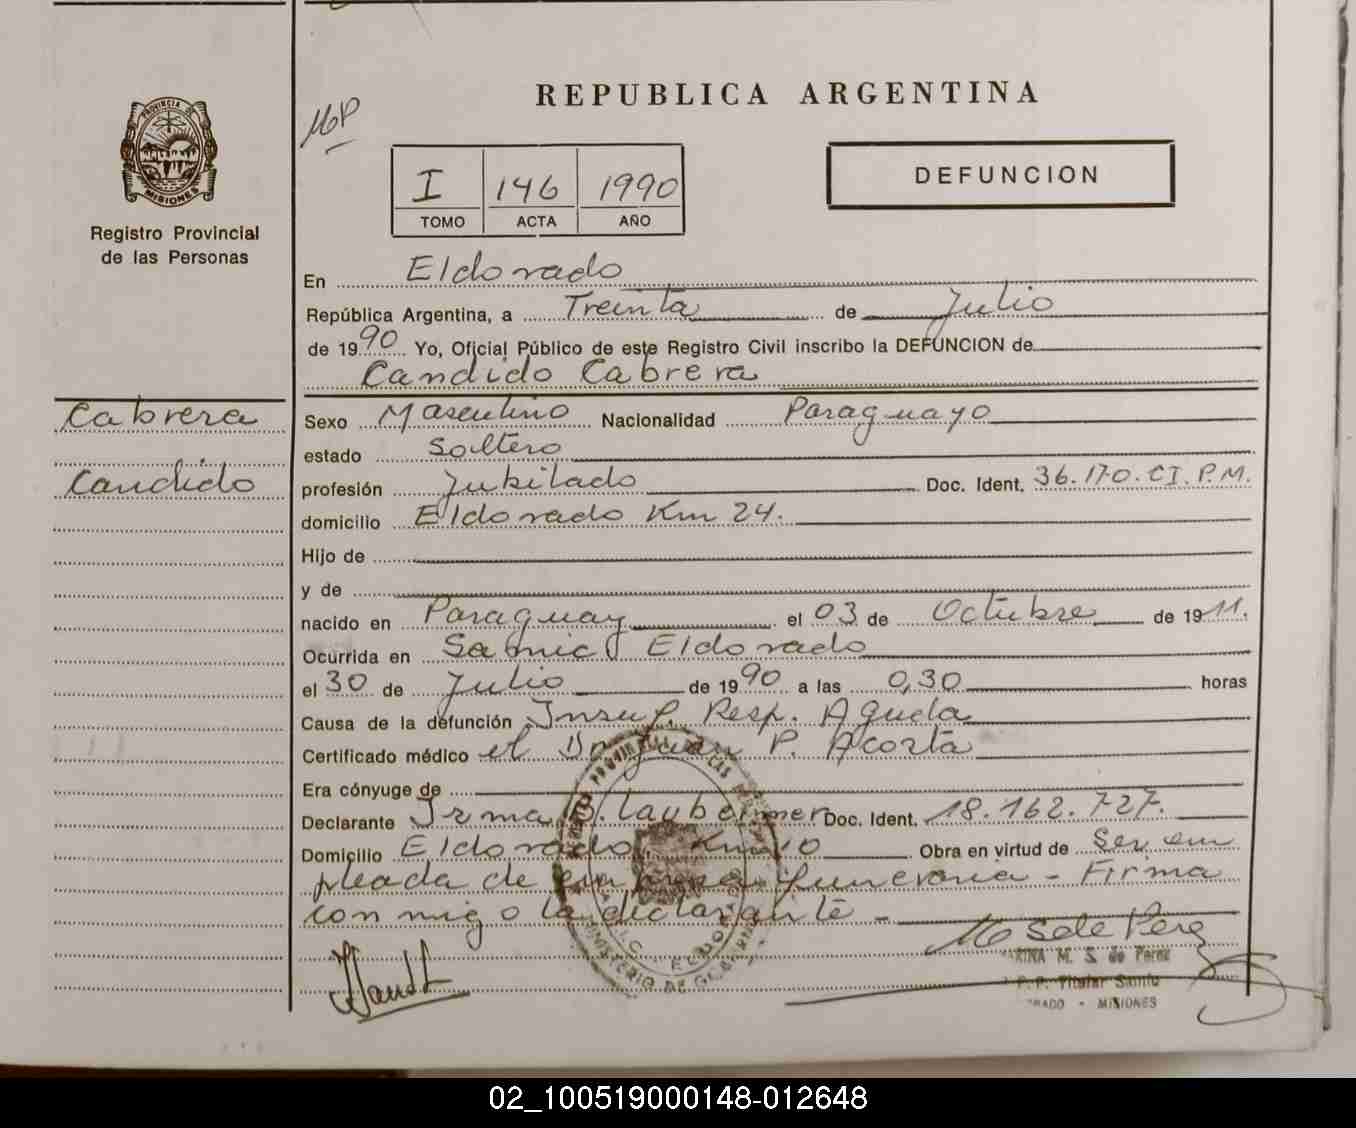 PROVINCIA DE
MISIONES
Registro Provincial
de las Personas
Cabrera
Candido
MP
REPUBLICA ARGENTINA
I 146 1990
TOMO ACTA AÑO
DEFUNCION
En Eldorado
República Argentina, a Treinta de Julio
de 1990 Yo, Oficial Público de este Registro Civil inscribo la DEFUNCION de
Candido Cabrera
Sexo Masculino Nacionalidad Paraguayo
estado Soltero
profesión Jubilado Doc. Ident. 36.170.CI.P.M.
domicilio Eldorado Km 24.
Hijo de
y de
nacido en Paraguay el 03 de Octubre de 1911.
Ocurrida en Samic Eldorado
el 30 de Julio de 1990 a las 0,30 horas
Causa de la defunción Insuf. Resp. Aguda
Certificado médico el Dr Juan P. Acosta
Era cónyuge de
Declarante Irma Laubeimer Doc. Ident. 18.162.727.
Domicilio Eldorado Km 10 Obra en virtud de Ser em
pleada de empresa funeraria - Firma
conmigo la declarante -
M S de Perez
M. S. de Perez
Titular
MISIONES
02_100519000148-012648